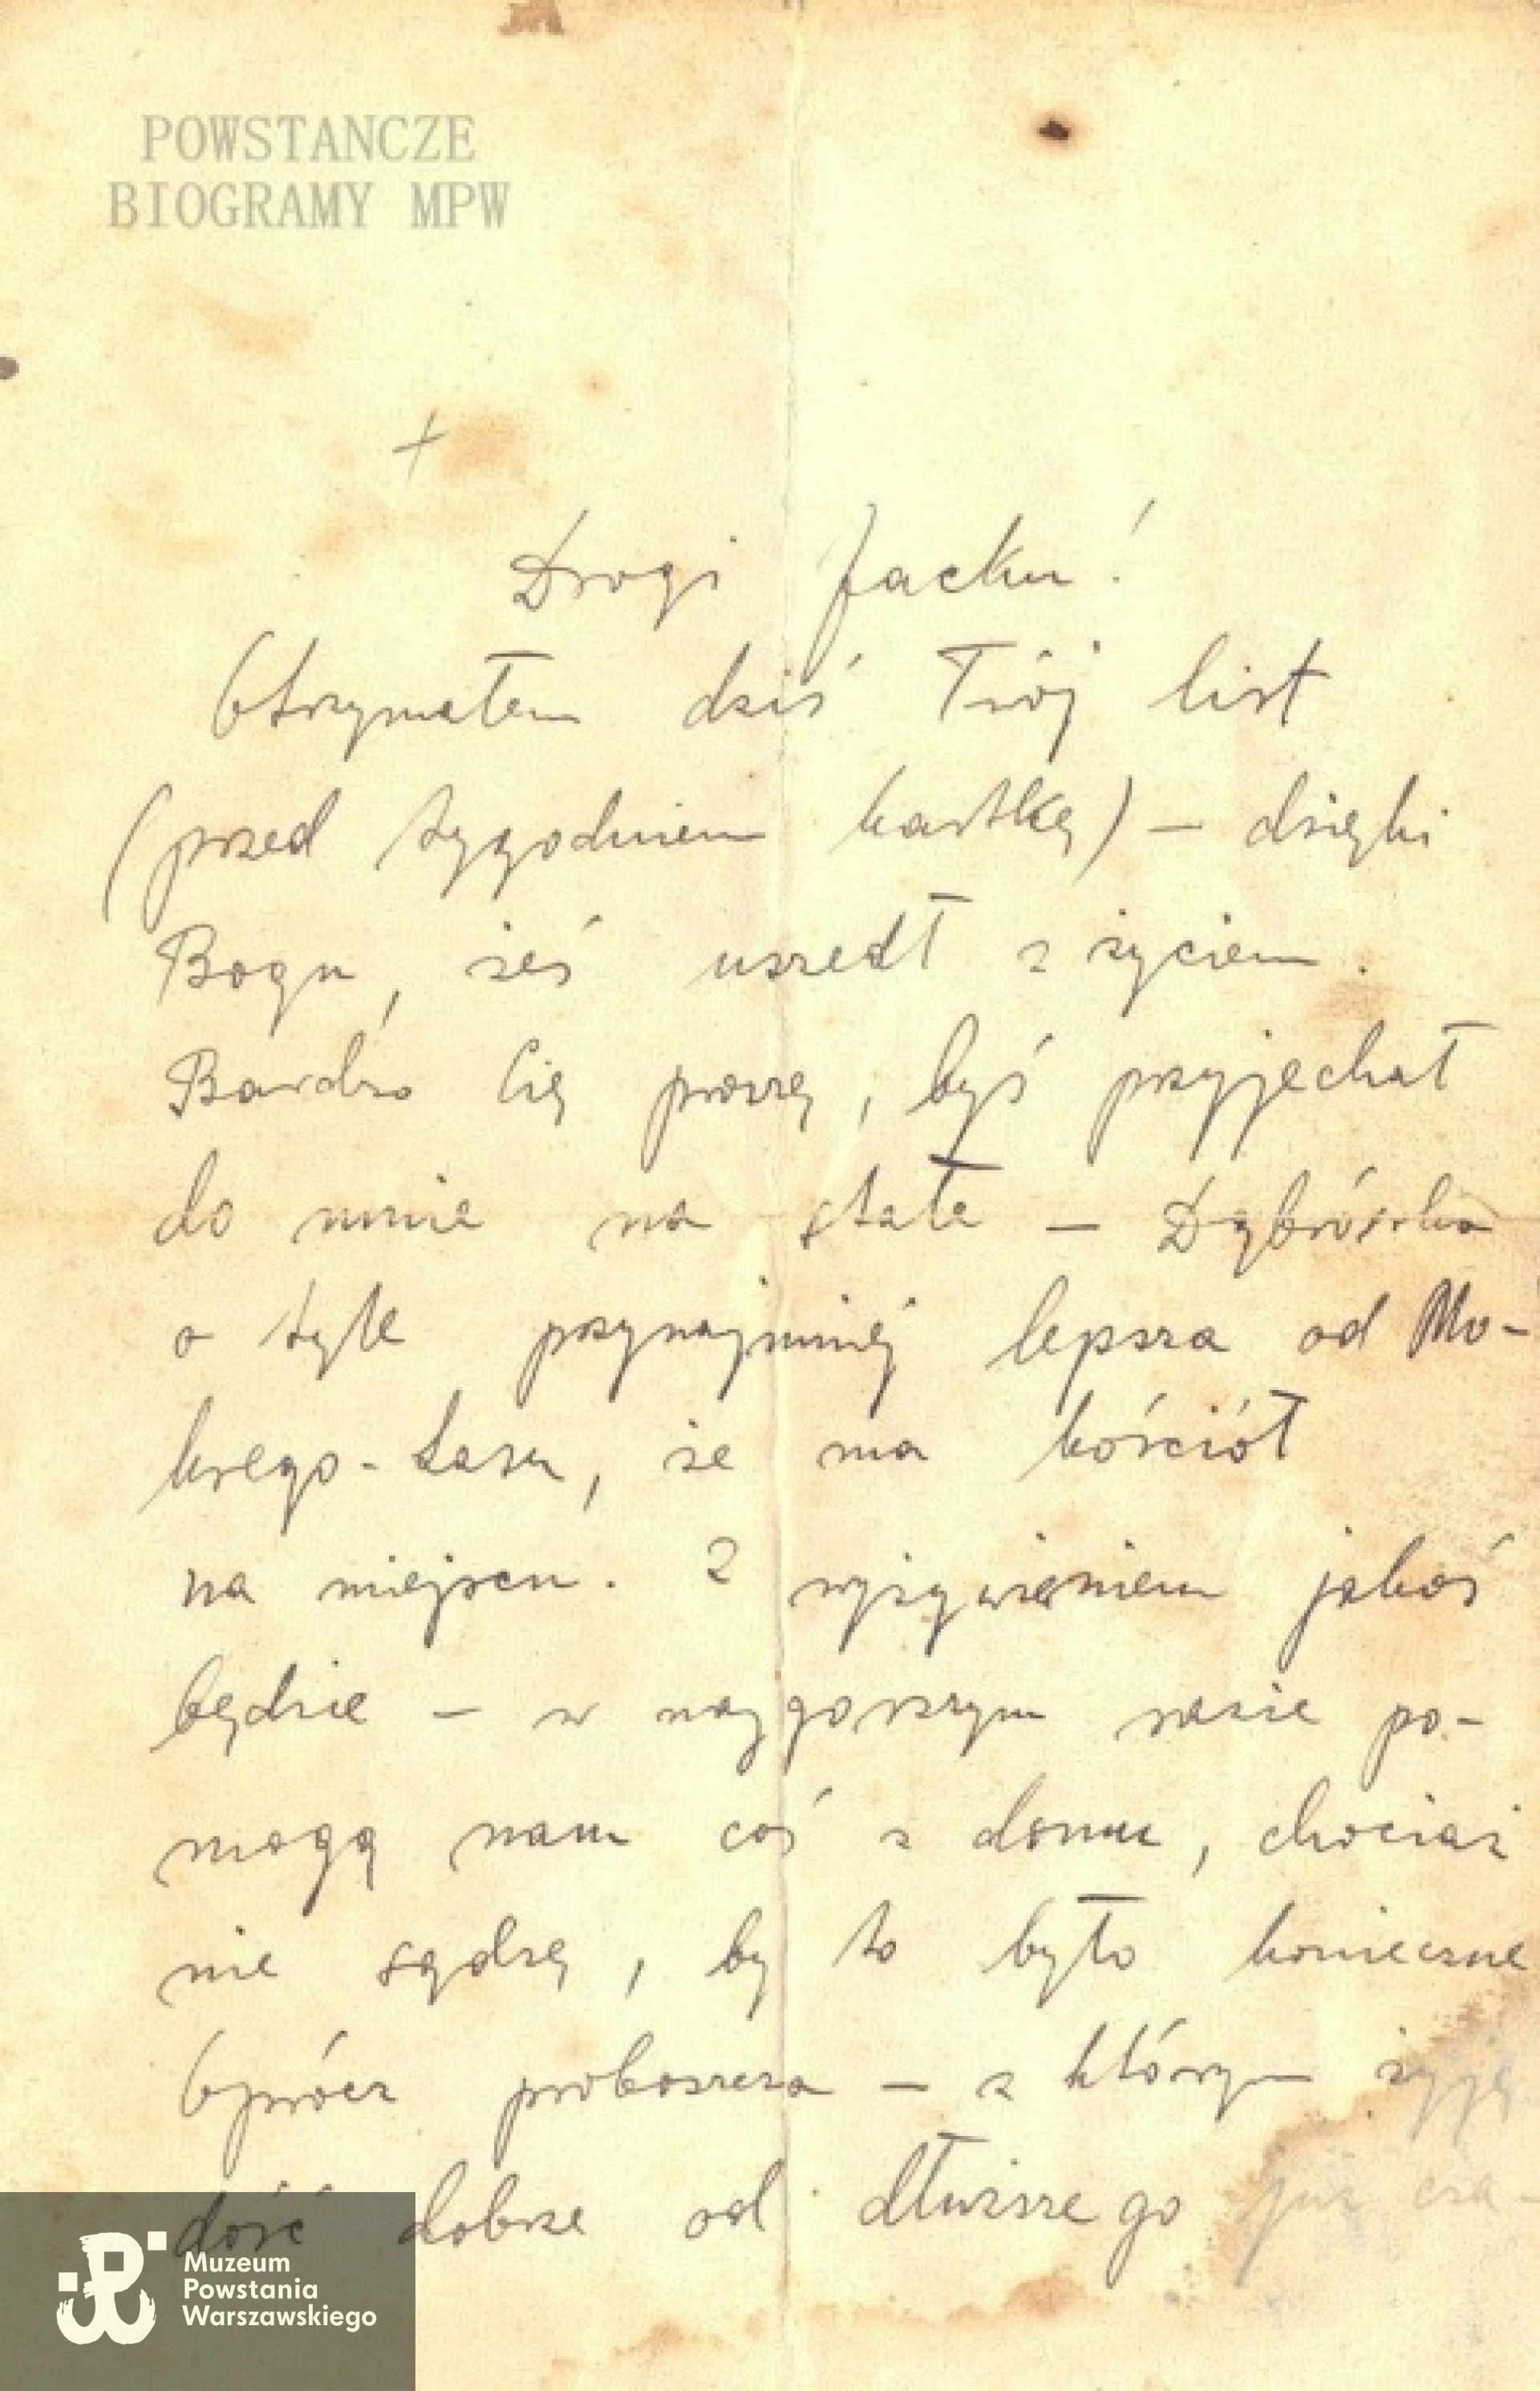 POWSTANCZE
BIOGRAMY MPW
+
Drogi Jacku!
Otrzymałem dziś Twój list
(przed tygodniem kartkę) – dzięki
Bogu, żeś uszedł z życiem.
Bardzo Cię proszę, byś przyjechał
do mnie na stałe – Dąbrówka
o tyle przynajmniej lepsza od Mo-
krego-Lasu, że ma kościół
na miejscu. Z wyżywieniem jakoś
będzie – w najgorszym razie po-
mogą nam coś z domu, chociaż
nie sądzę, by to było konieczne
Oprócz proboszcza – z którym żyję
dość dobrze od dłuższego już cza-
Muzeum
Powstania
Warszawskiego